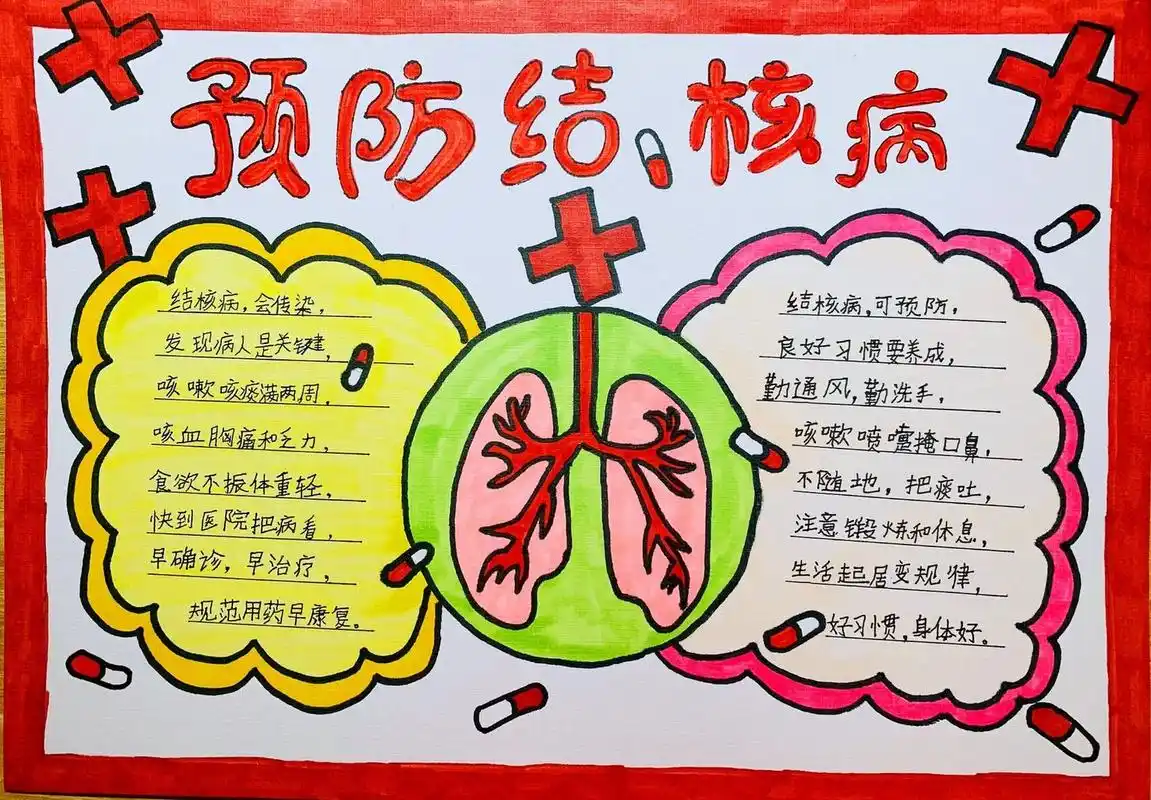 预防结核病
结核病，会传染，
发现病人是关键，
咳嗽咳痰满两周，
咳血胸痛和乏力，
食欲不振体重轻，
快到医院把病看，
早确诊，早治疗，
规范用药早康复。
结核病，可预防，
良好习惯要养成，
勤通风，勤洗手，
咳嗽喷嚏掩口鼻，
不随地，把痰吐，
注意锻炼和休息，
生活起居变规律，
好习惯，身体好。